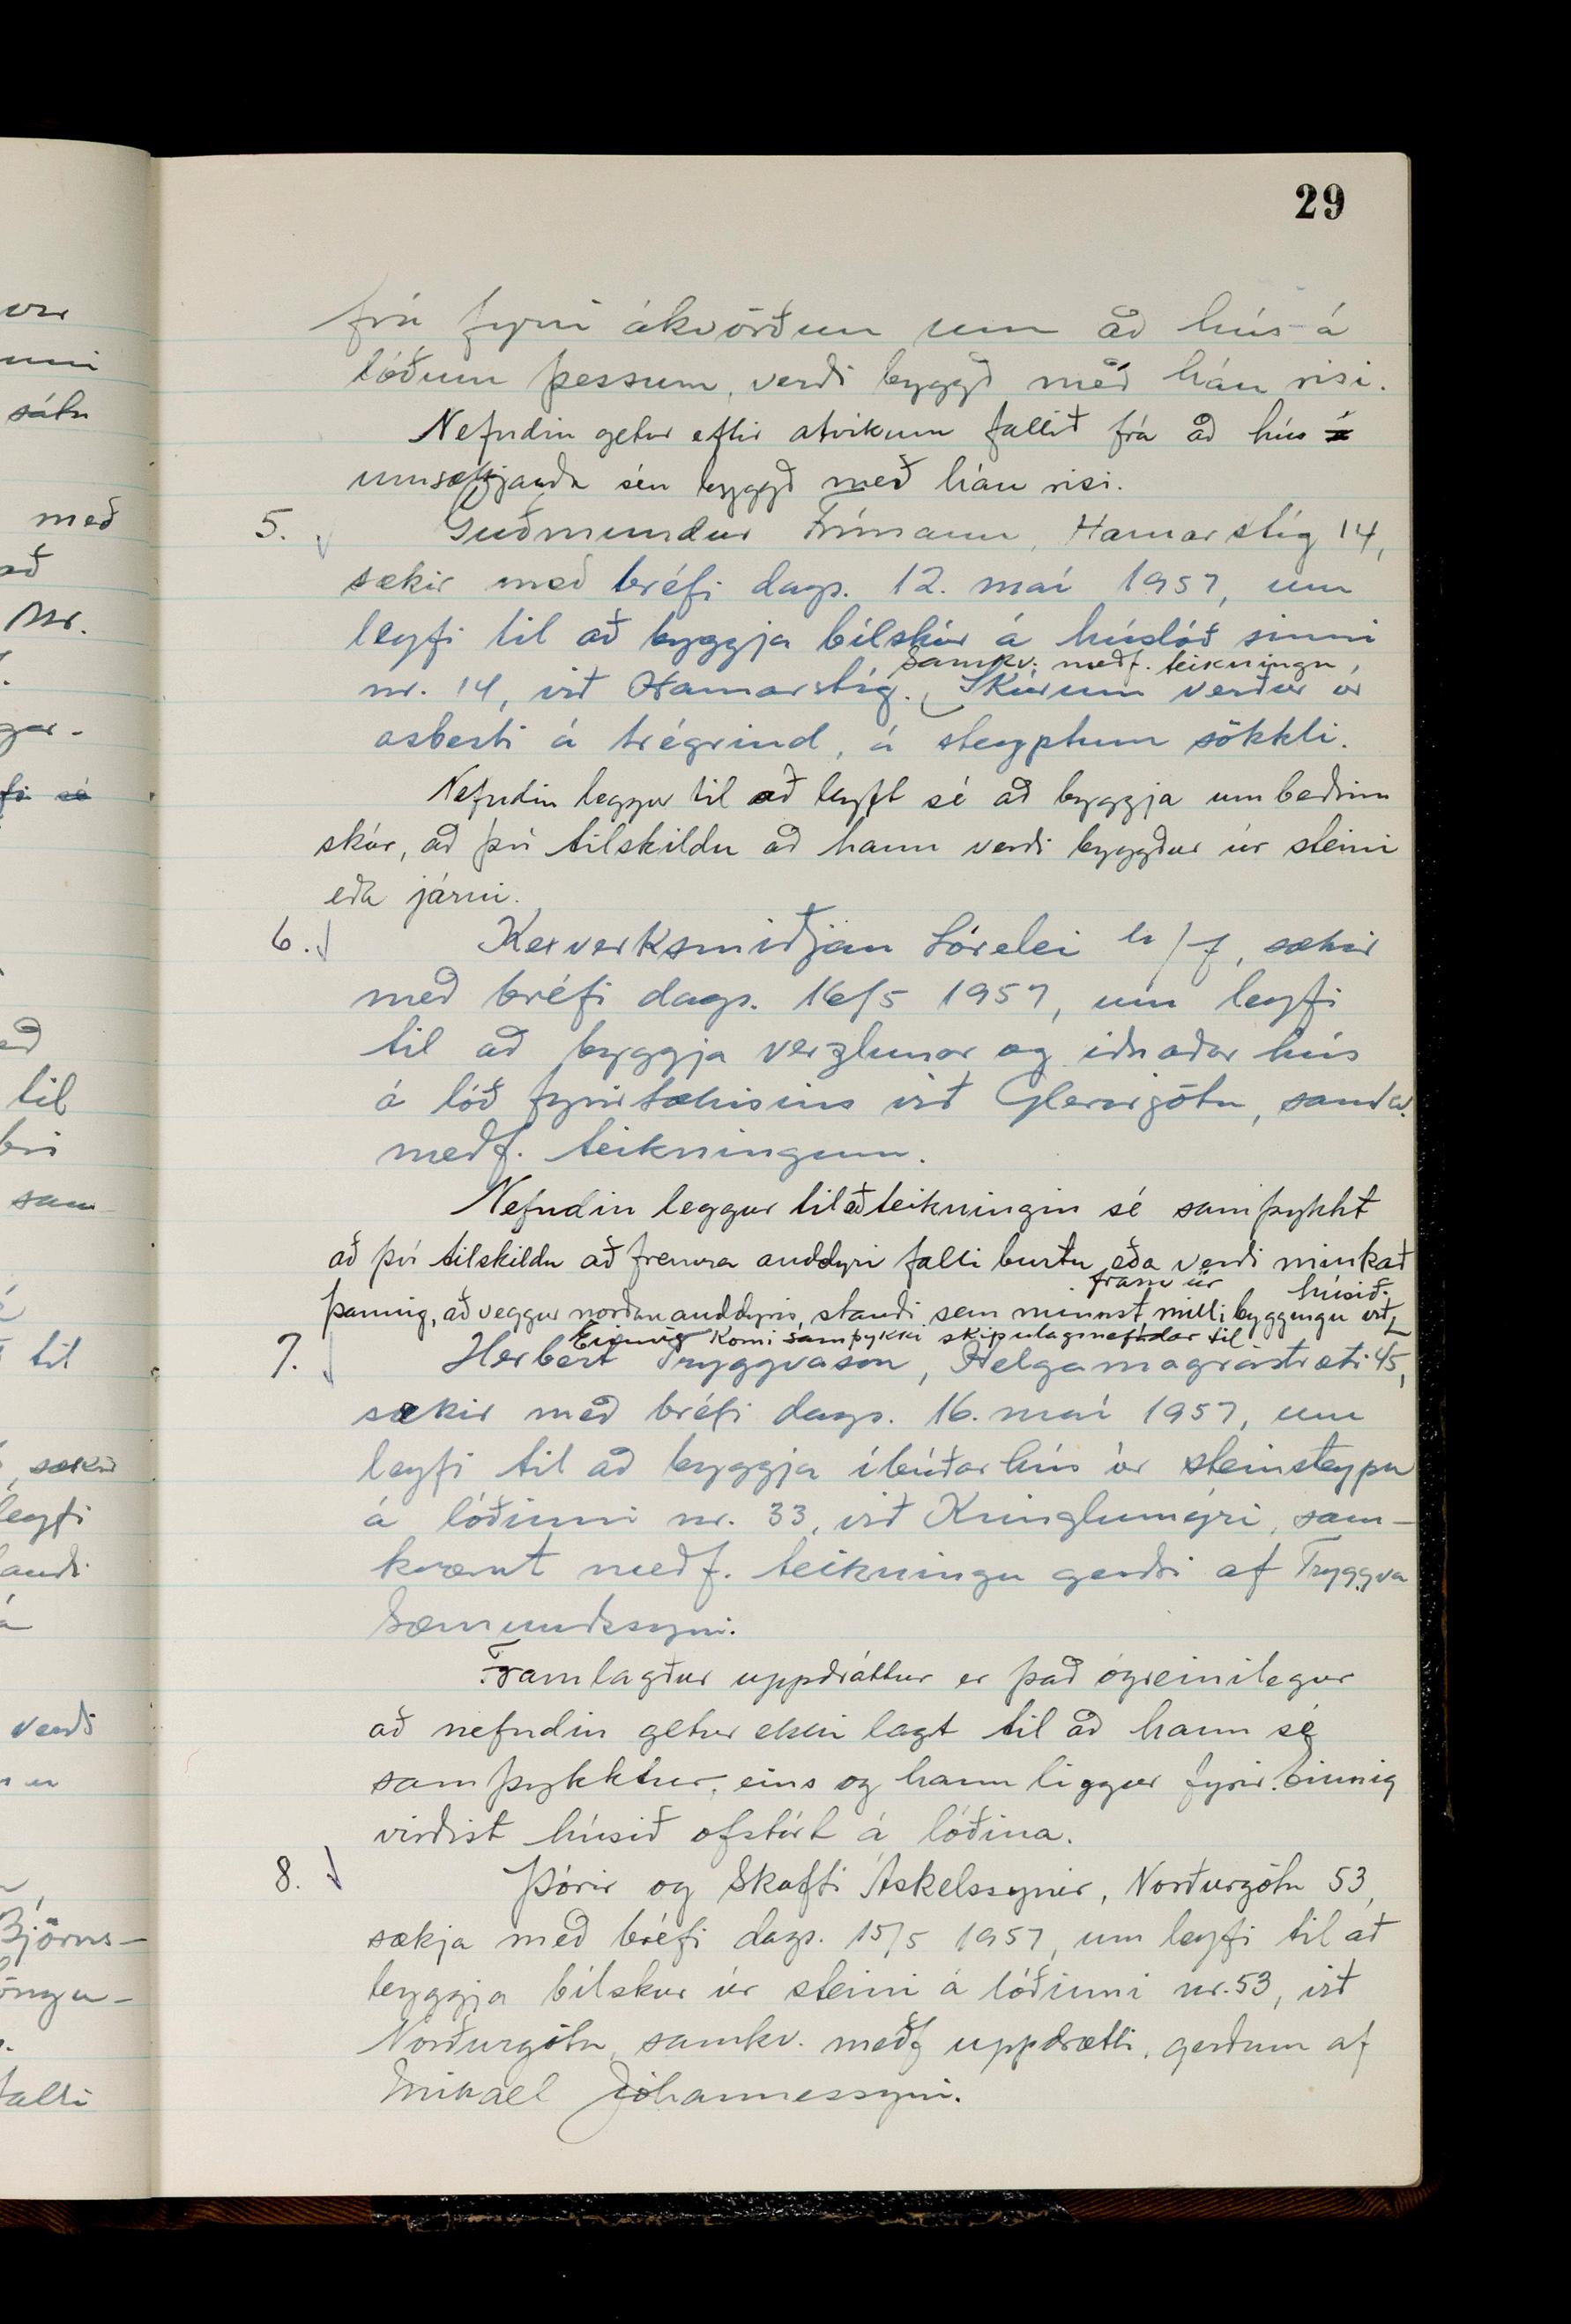 29
frá fyrri ákvörðun um að hús á
lóðum þessum, verði byggð með háu risi.
Nefndin getur eftir atvikum fallið frá að hús
umsækjanda séu byggð með háu risi.
5. Guðmundur Frímann, Hamarstíg 14,
sækir með bréfi dags. 12. maí 1957, um
leyfi til að byggja bílskúr á húslóð sinni
samkv. meðf. teikningu,
nr. 14, við Hamarstíg. Skúrinn verður úr
asbesti á trégrind, á steyptum sökkli.
Nefndin leggur til að leyft sé að byggja umbeðinn
skúr, að því tilskildu að hann verði byggður úr steini
eða járni.
6. Kexverksmiðjan Lórelei h/f, sækir
með bréfi dags. 16/5 1957, um leyfi
til að byggja verzlunar og iðnaðar hús
á lóð fyrirtækisins við Glerárgötu, samkv.
meðf. teikningum.
Nefndin leggur til að teikningin sé samþykkt
að því tilskildu að fremra anddyri falli burtu eða verði minkað
fram úr húsið.
þannig, að veggur norðan anddyris, standi sem minnst milli byggingu við
Einnig komi samþykki skipulagsnefndar til
7. Herbert Tryggvason, Helgamagrastræti 45,
sækir með bréfi dags. 16. maí 1957, um
leyfi til að byggja íbúðarhús úr steinsteypu
á lóðinni nr. 33, við Kringlumýri, sam-
kvæmt meðf. teikningu gerðri af Tryggva
Sæmundssyni.
Framlagður uppdráttur er það ógreinilegur
að nefndin getur ekki lagt til að hann sé
samþykktur, eins og hann liggur fyrir. Einnig
virðist húsið ofstórt á lóðina.
8. Þórir og Skafti Áskelssynir, Norðurgötu 53,
sækja með bréfi dags. 15/5 1957, um leyfi til að
byggja bílskur úr steini á lóðinni nr. 53, við
Norðurgötu, samkv. meðf uppdrætti, gerðum af
Mikael Jóhannessyni.